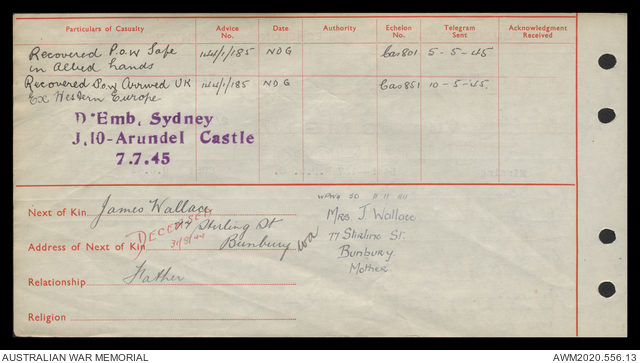 Particulars of Casualty Advice No. Date Authority Echelon No. Telegram Sent Acknowledgment Received
Recovered P.o.w Safe in Allied hands 144/1/185 NDG Cas801 5-5-45
Recovered P.o.w Arrived UK Ex Western Europe 144/1/185 NDG Cas851 10-5-45
D'Emb. Sydney
J.10-Arundel Castle
7.7.45
Next of Kin James Wallace
DECEASED 31/8/44
Address of Next of Kin 77 Stirling St Bunbury WA
Relationship Father
Religion
Mrs J. Wallace
77 Stirling St.
Bunbury
Mother
AUSTRALIAN WAR MEMORIAL
AWM2020.556.13